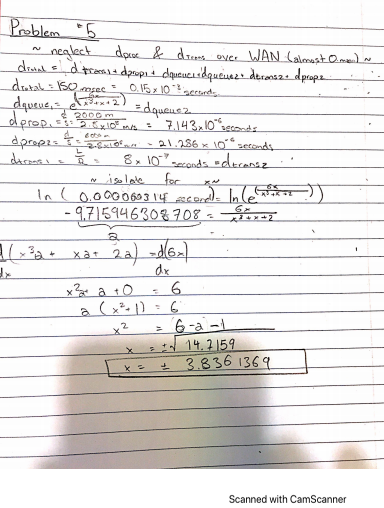 Problem #5
~ neglect dproc & dtrans over WAN (almost 0 msec) ~
dtotal = dtrans1 + dprop1 + dqueue1 + dqueue2 + dtrans2 + dprop2
dtotal = 150 msec = 0.15×10⁻³ seconds
dqueue1 = e^(6x/(x³+x+2)) = dqueue2
dprop1 = d/s = 2000m/2.8×10⁸ m/s = 7.143×10⁻⁶ seconds
dprop2 = d/s = /2.8×10⁸ m/s = 21.286×10⁻⁶ seconds
dtrans1 = L/R = 8×10⁻⁷ seconds = dtrans2
~ isolate for x ~
ln( 0.000060314 seconds) = ln(e^(6x/(x³+x+2)))
-9.715946308708 = 6x/(x³+x+2)
a
d/dx (x³a + xa + 2a) = d(6x)/dx
x²a + a + 0 = 6
a (x²+1) = 6
x² = 6-a-1
x = ±√14.7159
x = ± 3.8361369
Scanned with CamScanner